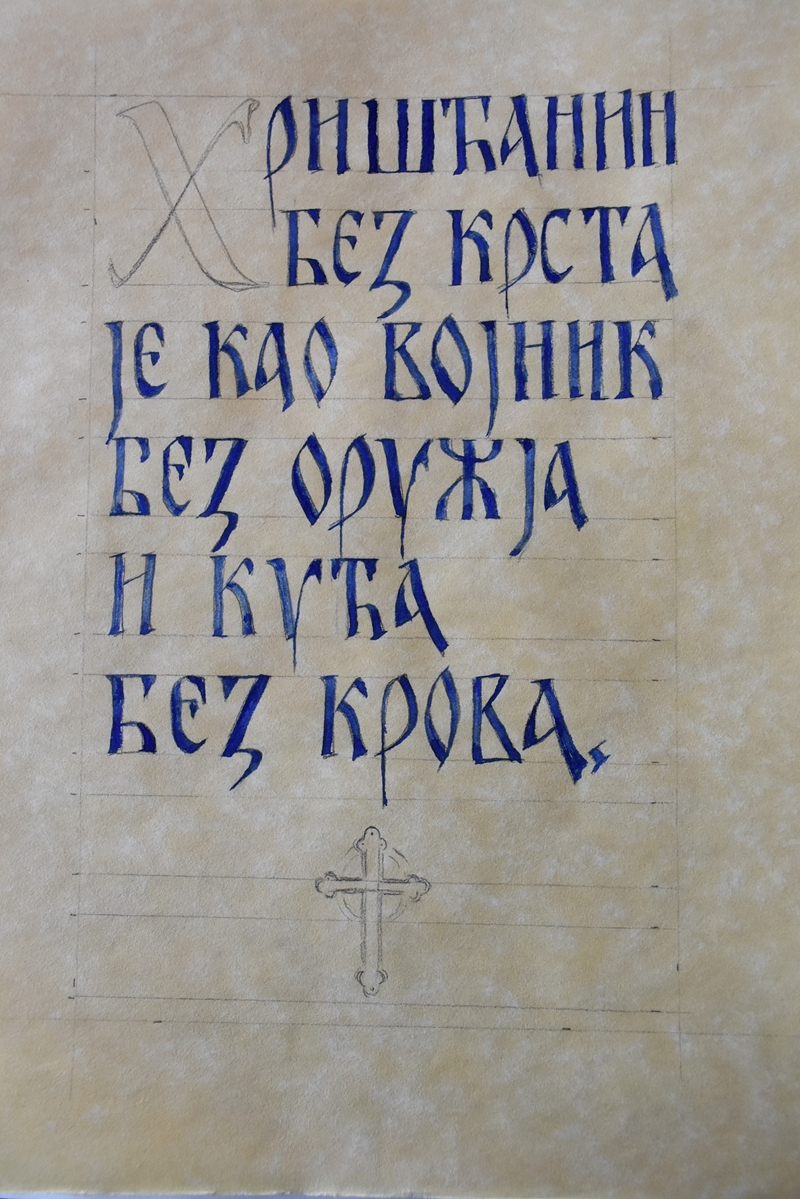 Хришћанин
без крста
је као војник
без оружја
и кућа
без крова.